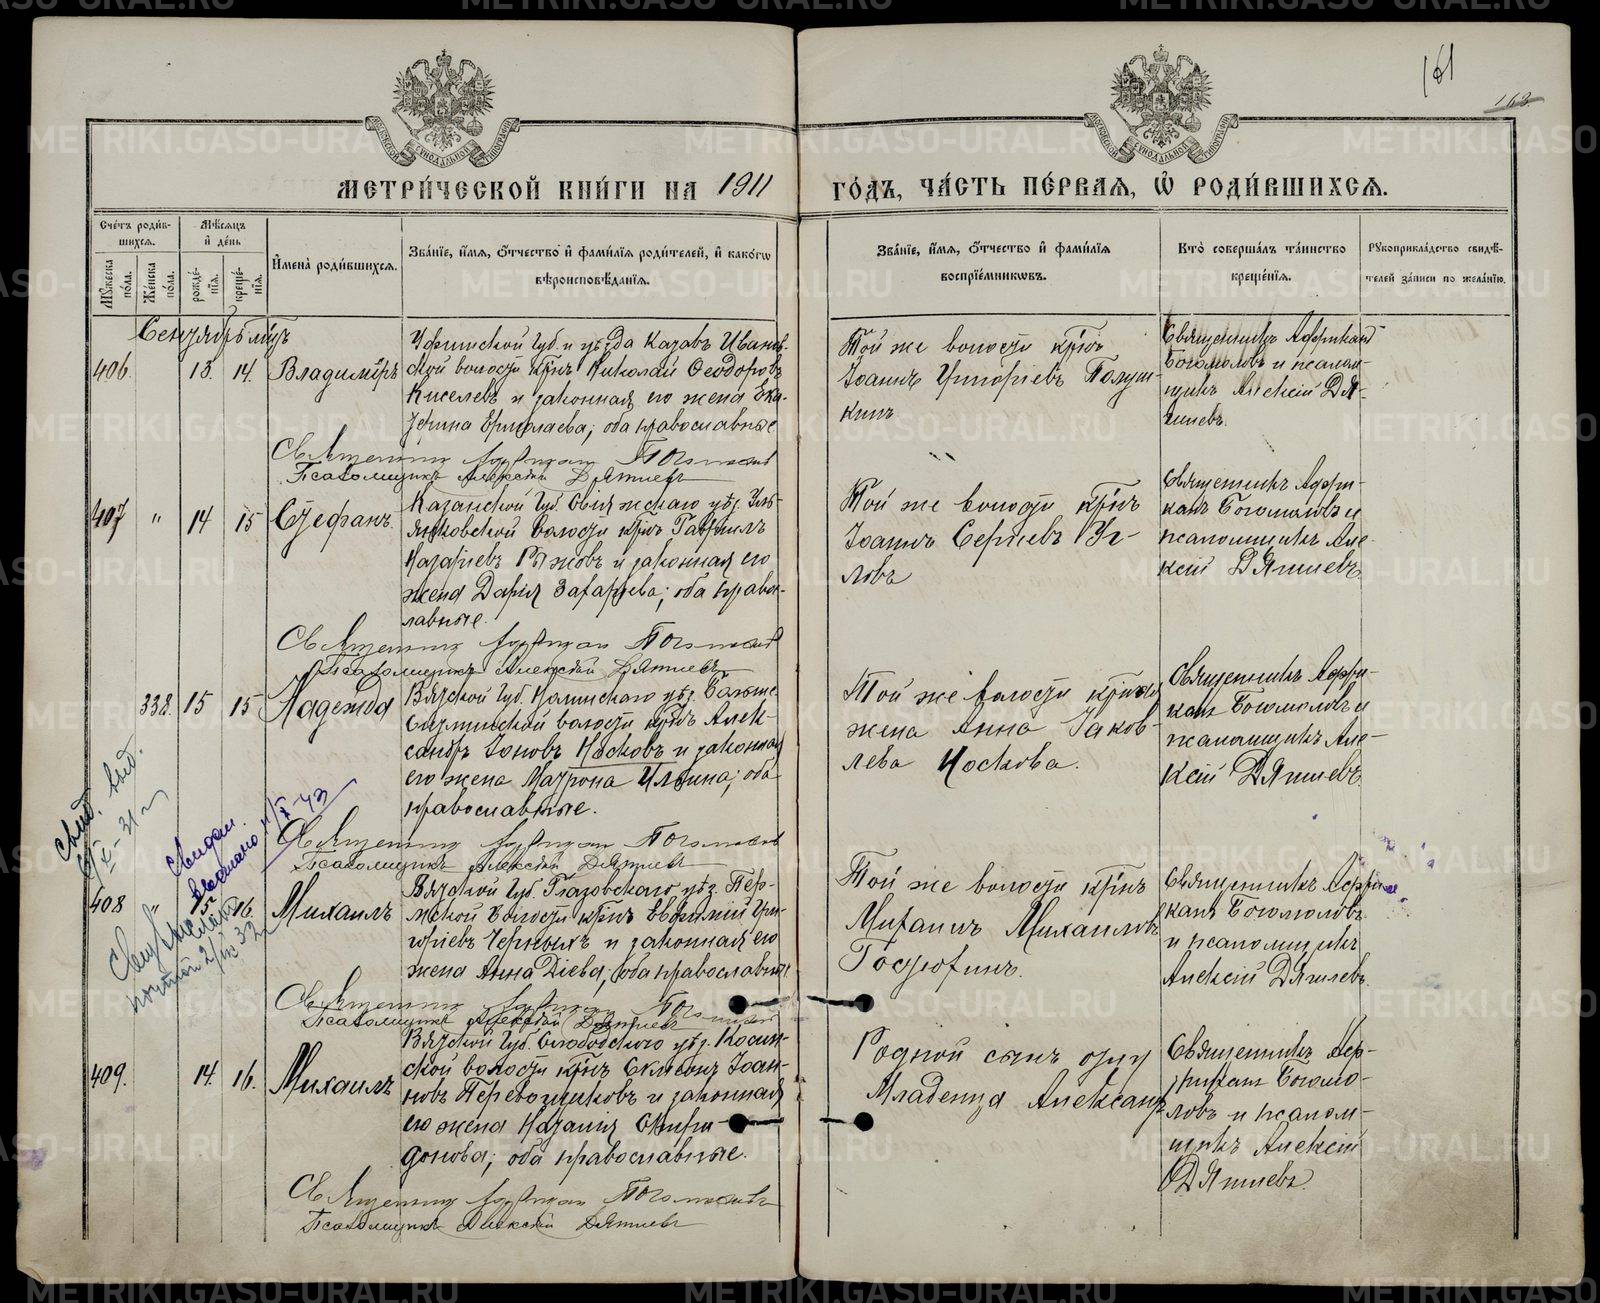 161
163.
МЕТРИ́ЧЕСКОЙ КНИ́ГИ НА 1911 ГО́ДЪ, ЧА́СТЬ ПЕ́РВАЯ, Ѡ҆ РОДИ́ВШИХСЯ.
Сче́тъ роди́вшихся.
Мѣ́сяцъ и҆ де́нь
Му́жеска по́ла.
Же́нска по́ла.
рожде́нїя.
креще́нїя.
И҆мена̀ роди́вшихся.
Зва́нїе, и҆́мя, ѻ҆́тчество и҆ фами́лїя роди́телей, и҆ како́гѡ вѣроисповѣ́данїя.
Зва́нїе, и҆́мя, ѻ҆́тчество и҆ фами́лїя воспрїе́мниковъ.
Кто̀ соверша́лъ та́инство креще́нїя.
Рукоприкла́дство свидѣ́телей за́писи по жела́нїю.
Сентябрь мѣц
406. 13. 14. Владиміръ
Уфимской губ. и уѣзда Казав. Иванов-
ской волости кр҃нъ Николай Ѳеодоровъ
Киселевъ и законная его жена Ека-
терина Ермолаева; оба православные
Той же волости кр҃нъ
Іоаннъ Григоріевъ Полуш-
кинъ
Священникъ Африкан
Богомоловъ и псалом-
щикъ Алексій Дя-
гилевъ.
Священник Африкан Богомолов
Псаломщикъ Алексѣй Дягилевъ
407 " 14 15 Стефанъ.
Казанской губ. Свіяжскаго уѣз. Уль-
янковской волости кр҃нъ Гавріилъ
Назаріевъ Ряжовъ и законная его
жена Дарія Захаріева; оба правос-
лавные.
Той же волости кр҃нъ
Іоаннъ Сергіевъ Уг-
ловъ
Священникъ Афри-
канъ Богомоловъ и
псаломщикъ Але-
ксій Дягилевъ.
Священник Африкан Богомолов
Псаломщикъ Алексѣй Дягилевъ
338. 15 15 Надежда
Вятской губ. Нолинскаго уѣз. Больше-
Ситминской волости кр҃нъ Алек-
сандръ Іоновъ Носковъ и законная
его жена Матрона Ильина; оба
православные.
Той же волости кр҃нка
жена Анна Іаков-
лева Носкова.
Священникъ Афри-
канъ Богомоловъ и
псаломщикъ Але-
ксій Дягилевъ.
Священник Африкан Богомолов
Псаломщикъ Алексѣй Дягилевъ
408 " 15 16. Михаилъ
Вятской губ. Глазовскаго уѣз. Пер-
мской волости кр҃нъ Евфимій Гри-
горіевъ Черныхъ и законная его
жена Анна Діева; оба православные
Той же волости кр҃нъ
Михаилъ Михаиловъ
Священникъ Афри-
канъ Богомоловъ
и псаломщикъ
Алексій Дягилевъ.
Священник Африкан Богомолов
Псаломщикъ Алексѣй Дягилевъ
409. 14. 16. Михаилъ
Вятской губ. Слободского уѣз. Косин-
ской волости кр҃нъ Іоан-
новъ Перевощиковъ и законная
его жена Наталія Спири-
донова; оба православные.
Родной сынъ отцу
младенца Александръ
Священникъ Аф-
риканъ Богомо-
ловъ и псалом-
щикъ Алексій
Дягилевъ.
Священник Африкан Богомоловъ
Псаломщикъ Алексѣй Дягилевъ
свид. выд.
METRIKI.GASO-URAL.RU